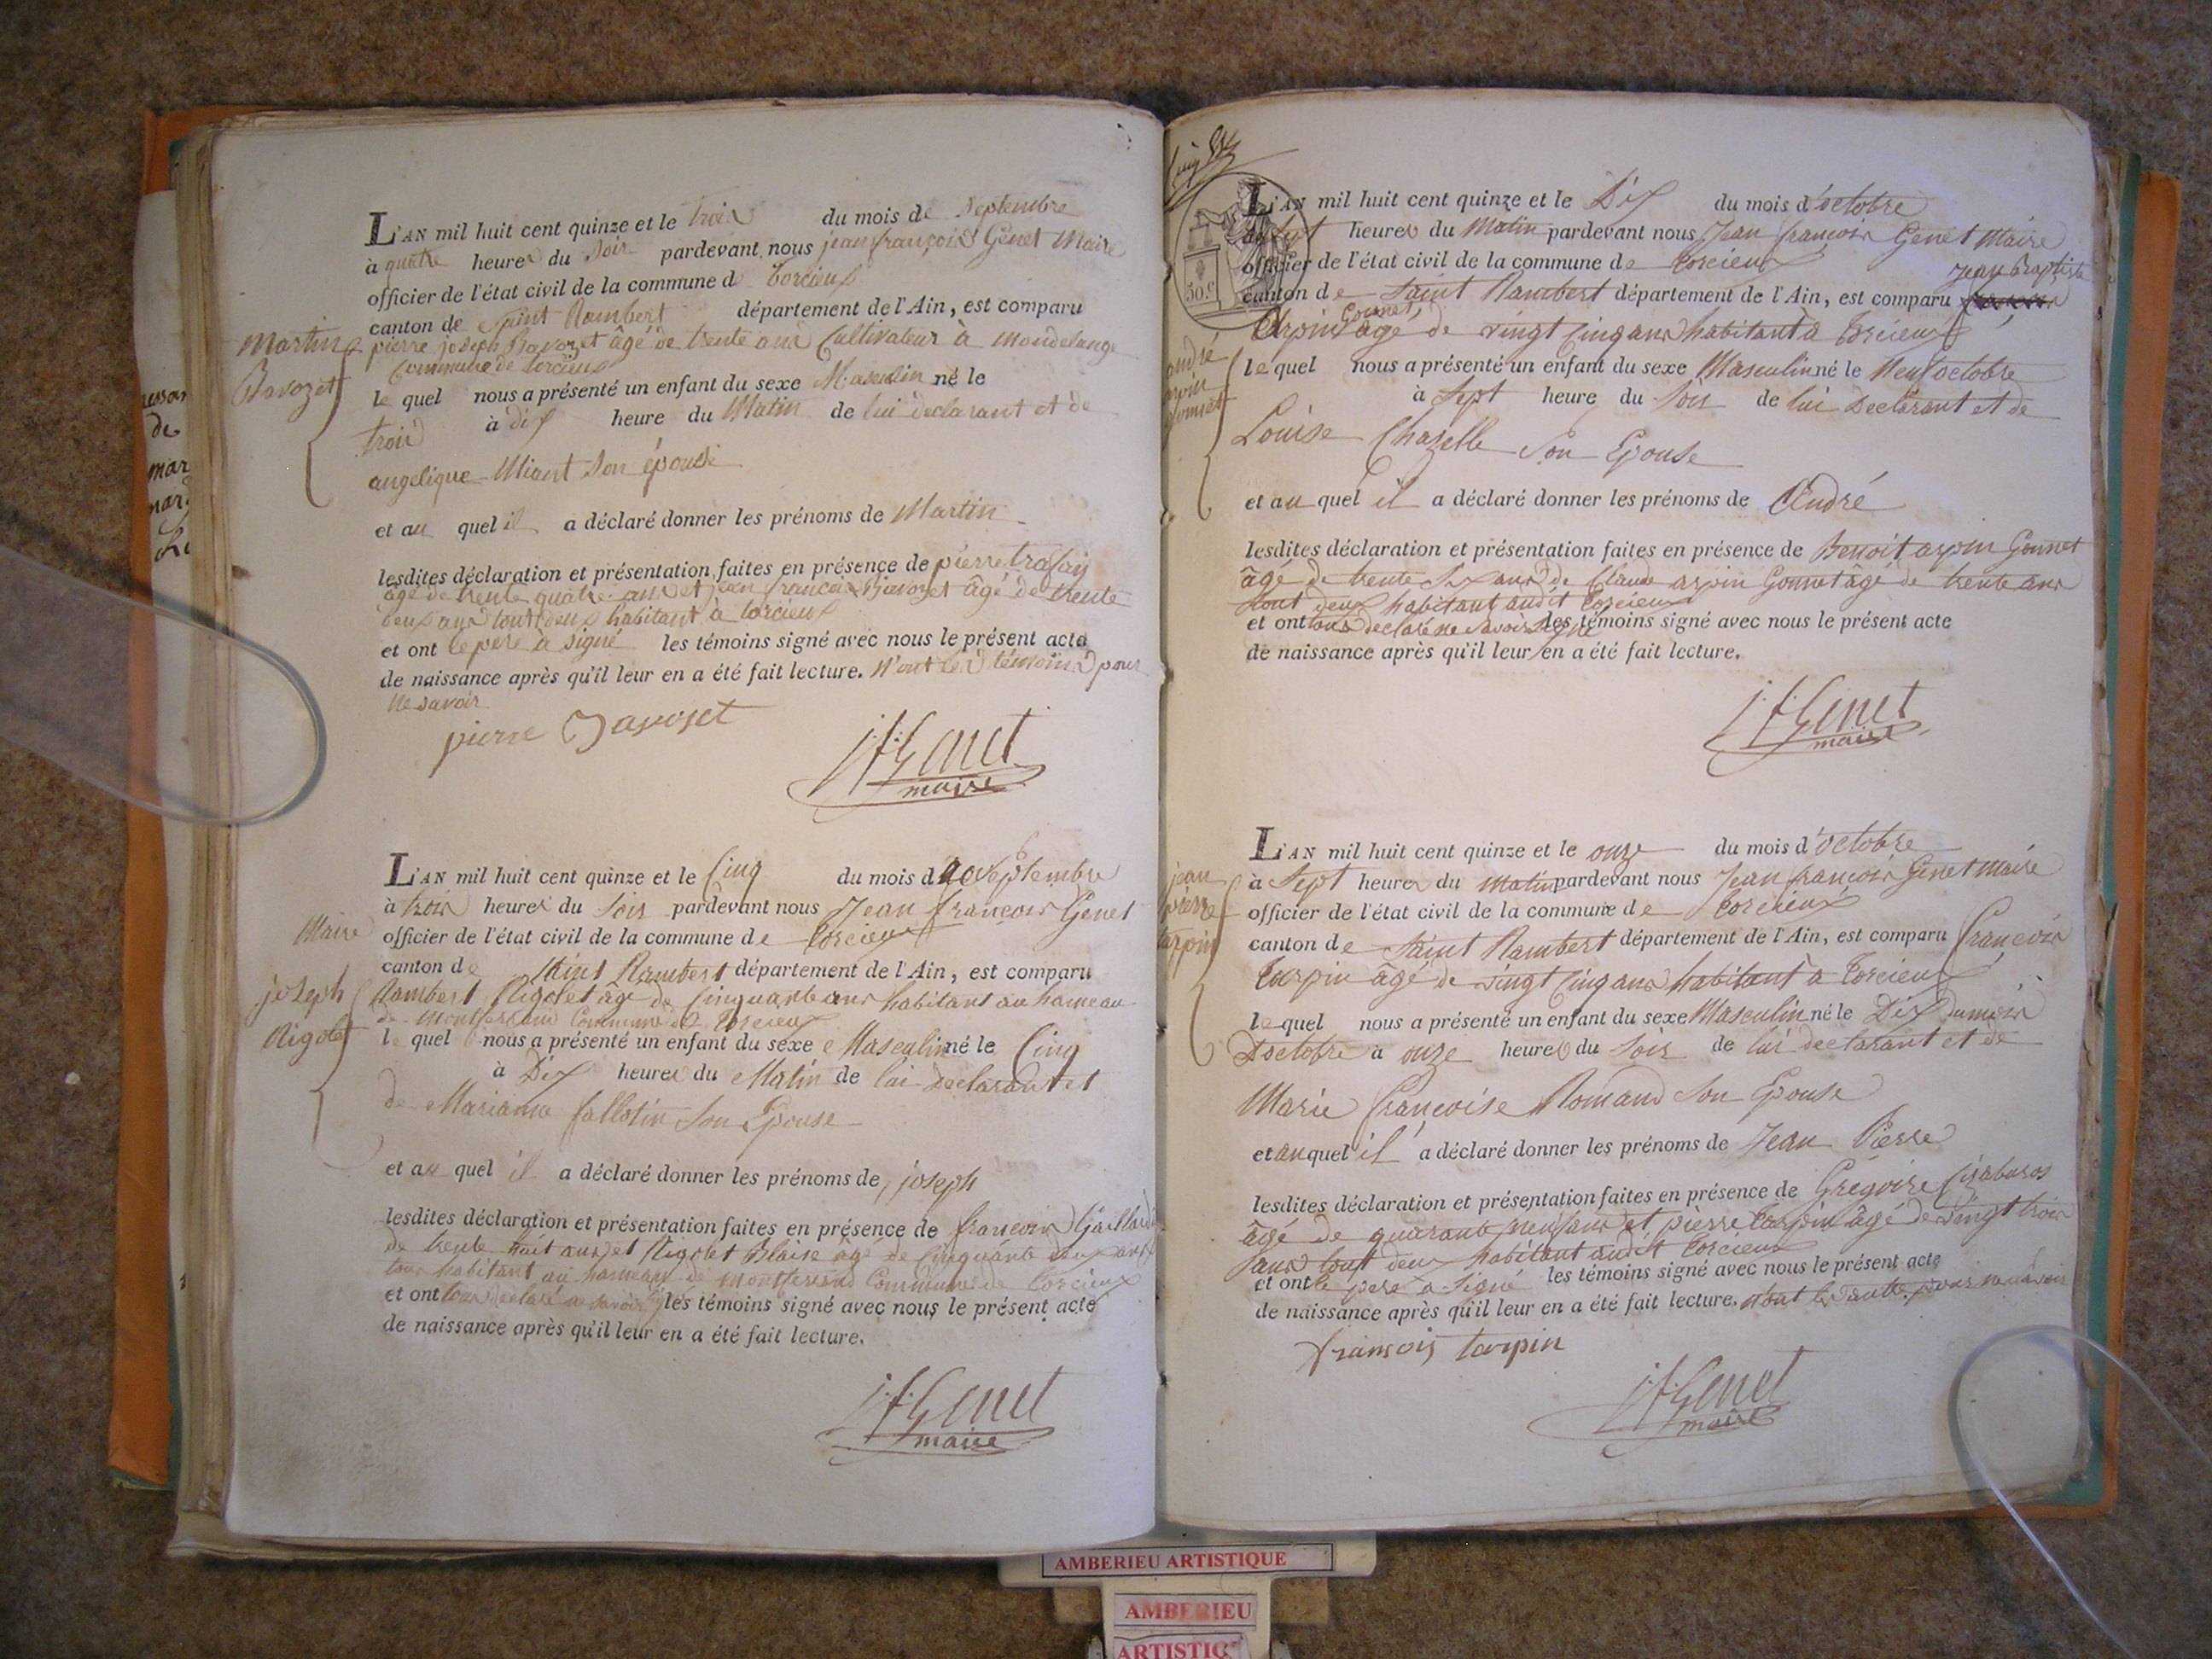 L'AN mil huit cent quinze et le trois du mois de Septembre
à quatre heures du soir pardevant nous jean françois Genet Maire
officier de l'état civil de la commune de torcieux
canton de Saint Rambert département de l'Ain, est comparu
pierre joseph Bavozet âgé de trente ans Cultivateur à
commune de torcieux
Martin
Bavozet
le quel nous a présenté un enfant du sexe Masculin né le
trois à dix heure du Matin de lui declarant et de
angelique Miant son épouse
et au quel il a déclaré donner les prénoms de Martin
lesdites déclaration et présentation faites en présence de pierre
âgé de trente quatre ans et jean françois Bavozet âgé de trente
deux ans tout deux habitant à torcieux
et ont le pere à signé les témoins signé avec nous le présent acte
de naissance après qu'il leur en a été fait lecture. N'ont les témoins pour
ne savoir
pierre Bavozet
J f Genet
maire
L'AN mil huit cent quinze et le Cinq du mois de Septembre
à trois heures du soir pardevant nous Jean françois Genet
Maire officier de l'état civil de la commune de Torcieux
canton de Saint Rambert département de l'Ain, est comparu
Rambert Rigolet âgé de Cinquante ans habitant au hameau
de montferrand Commune de Torcieux
joseph
Rigolet
le quel nous a présenté un enfant du sexe Masculin né le Cinq
à Dix heures du Matin de lui declarant et
de Marianne fallotin Son Epouse
et au quel il a déclaré donner les prénoms de joseph
lesdites déclaration et présentation faites en présence de francois Gaillard
de trente huit ans et Rigolet Blaise âgé de Cinquante deux ans
tous habitant au hameau de montferrand Commune de Torcieux
et ont tous declaré ne savoir les témoins signé avec nous le présent acte
de naissance après qu'il leur en a été fait lecture.
J f Genet
maire
50.c
L'AN mil huit cent quinze et le Dix du mois d'octobre
à Sept heures du Matin pardevant nous Jean francois Genet Maire
officier de l'état civil de la commune de Torcieux
canton de Saint Rambert département de l'Ain, est comparu Jean Baptiste
Arpin Gonnet âgé de vingt Cinq ans habitant à Torcieux
andré
arpin
gonnet
le quel nous a présenté un enfant du sexe Masculin né le Neuf octobre
à Sept heure du Soir de lui Declarant et de
Louise Chazelle Son Epouse
et au quel il a déclaré donner les prénoms de André
lesdites déclaration et présentation faites en présence de Benoit arpin Gonnet
âgé de trente Six ans de Claude arpin Gonnet âgé de trente ans
tout deux habitant audit Torcieux
et ont tous declaré ne savoir signé les témoins signé avec nous le présent acte
de naissance après qu'il leur en a été fait lecture.
J f Genet
maire
L'AN mil huit cent quinze et le onze du mois d'octobre
à Sept heures du matin pardevant nous Jean françois Genet Maire
officier de l'état civil de la commune de Torcieux
canton de Saint Rambert département de l'Ain, est comparu François
Tarpin âgé de vingt Cinq ans habitant à Torcieux
jean
pierre
tarpin
le quel nous a présenté un enfant du sexe Masculin né le Dix du mois
D'octobre à onze heures du Soir de lui declarant et de
Marie françoise Romand Son Epouse
et au quel il a déclaré donner les prénoms de Jean Pierre
lesdites déclaration et présentation faites en présence de Grégoire
âgé de quarante neuf ans et pierre tarpin âgé de vingt trois
ans tout deux habitant audit Torcieux
et ont le pere a Signé les témoins signé avec nous le présent acte
de naissance après qu'il leur en a été fait lecture. n'ont les autre pour ne savoir
francois tarpin
J f Genet
maire
AMBERIEU ARTISTIQUE
AMBERIEU
ARTISTIQ